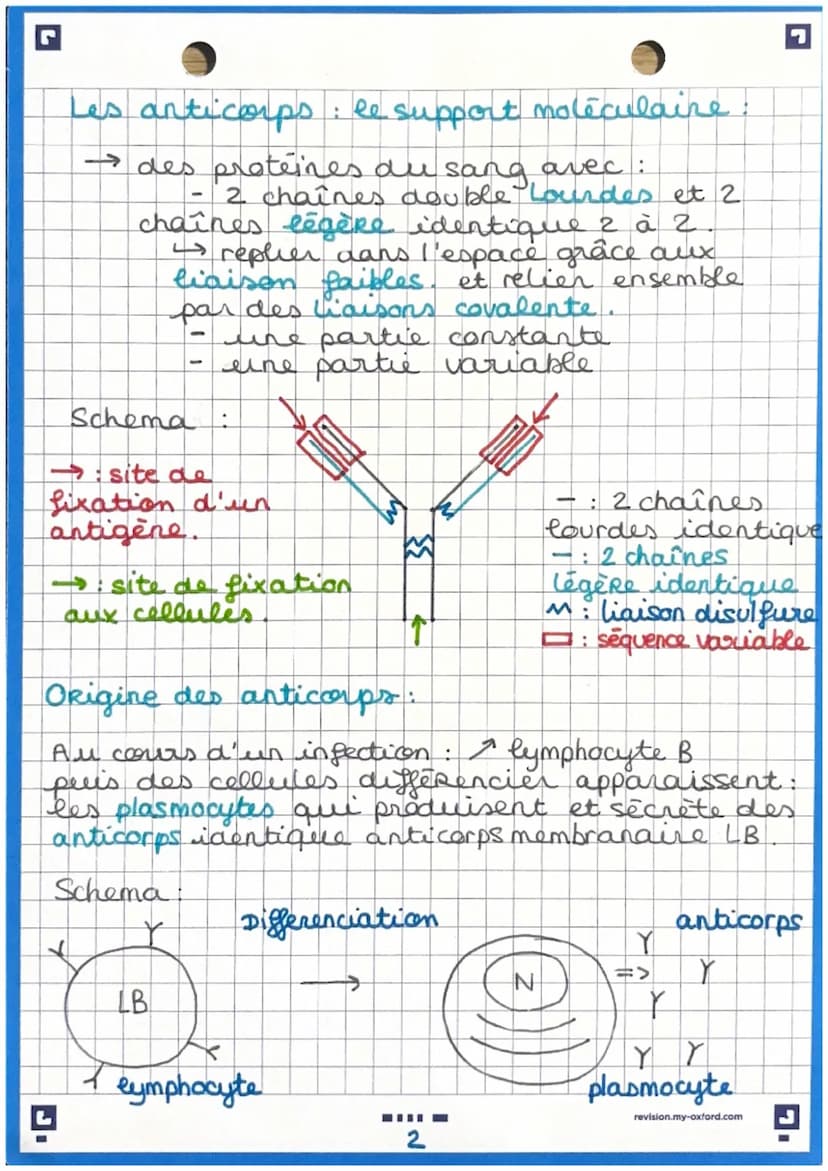 Les anticorps : le support moléculaire :
→ des protéines du sang avec :
- 2 chaînes double lourdes et 2
chaînes légère identique 2 à 2.
↳ replier dans l'espace grâce aux
liaison faibles. et relier ensemble
par des liaisons covalente.
- une partie constante
- une partie variable
Schema :
→ : site de
fixation d'un
antigène.
→ : site de fixation
aux cellules.
- : 2 chaînes
lourdes identique
- : 2 chaînes
légère identique
: liaison disulfure
: séquence variable
Origine des anticorps :
Au cours d'un infection : ↗ lymphocyte B
puis des cellules différencier apparaissent :
les plasmocytes qui produisent et sécrète des
anticorps identique anticorps membranaire LB.
Schema :
Differenciation
anticorps
LB
→
N
=>
lymphocyte
plasmocyte
revision.my-oxford.com
2